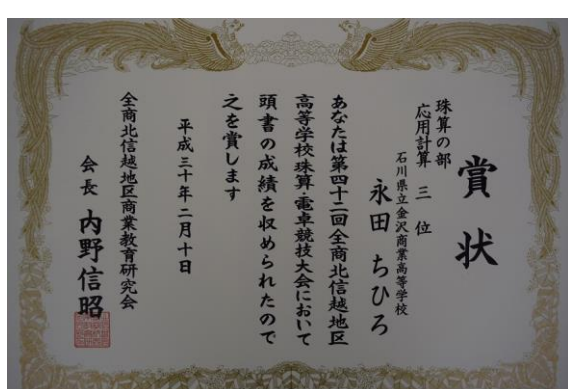 賞状
珠算の部
応用計算 三位
石川県立金沢商業高等学校
永田 ちひろ
あなたは第四十二回全商北信越地区
高等学校珠算・電卓競技大会において
頭書の成績を収められたので
之を賞します
平成三十年二月十日
全商北信越地区商業教育研究会
会長 内野信昭